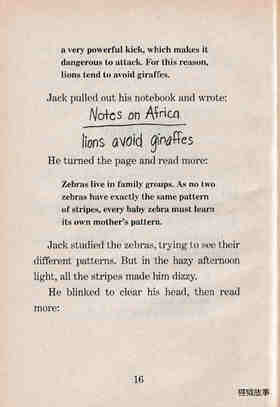 a very powerful kick, which makes it
dangerous to attack. For this reason,
lions tend to avoid giraffes.
Jack pulled out his notebook and wrote:
Notes on Africa
lions avoid giraffes
He turned the page and read more:
Zebras live in family groups. As no two
zebras have exactly the same pattern
of stripes, every baby zebra must learn
its own mother's pattern.
Jack studied the zebras, trying to see their
different patterns. But in the hazy afternoon
light, all the stripes made him dizzy.
He blinked to clear his head, then read
more:
16